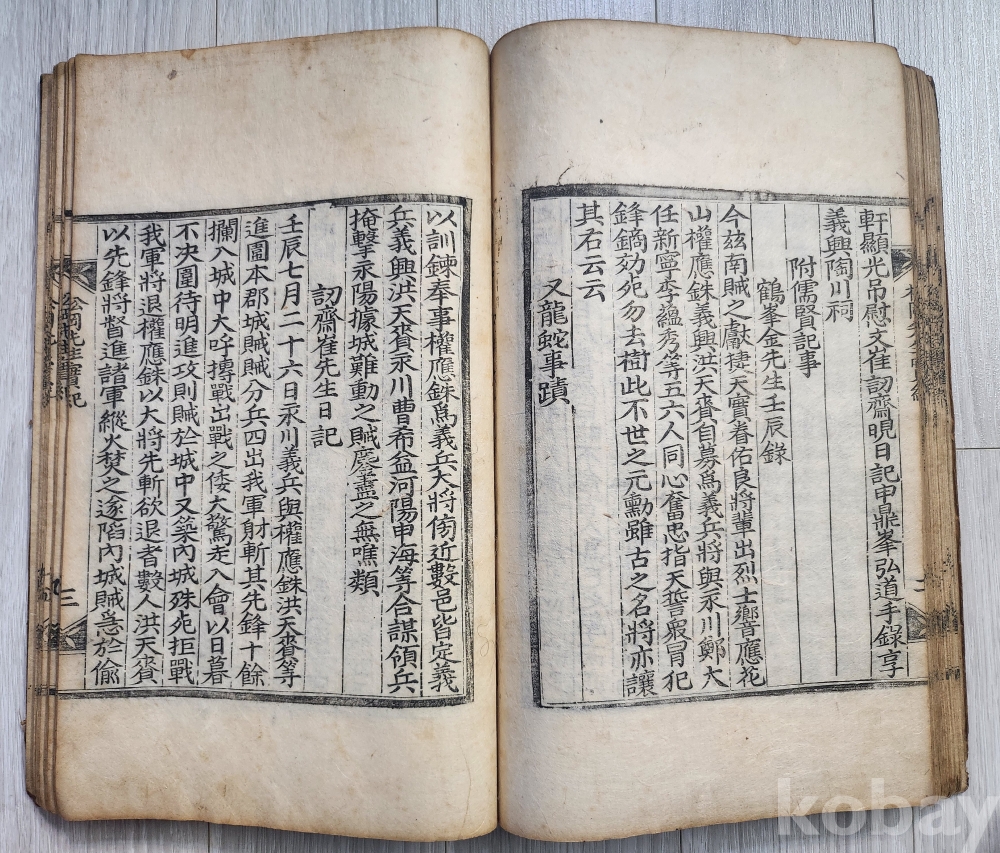 軒顯光吊慰文崔訒齋晛日記申鼎峯弘道手錄享
義興陶川祠
附儒賢記事
鶴峯金先生壬辰錄
今玆南賊之獻捷天實眷佑良將輩出烈士響應花
山權應銖義興洪天賚自募爲義兵將與永川鄭大
任新寧李蘊秀等五六人同心奮忠指天誓衆冒犯
鋒鏑効死勿去樹此不世之元勳雖古之名將亦讓
其右云云
又龍蛇事蹟
以訓鍊奉事權應銖爲義兵大將傍近數邑皆定義
兵義興洪天賚永川曹希益河陽申海等合謀領兵
掩擊永陽據城難動之賊鏖盡之無噍類
訒齋崔先生日記
壬辰七月二十六日永川義兵與權應銖洪天賚等
進圍本郡城賊賊分兵四出我軍射斬其先鋒十餘
攔入城中大呼搏戰出戰之倭大驚走入會以日暮
不決圍待明進攻則賊於城中又築內城殊死拒戰
我軍將退權應銖以大將先斬欲退者數人洪天賚
以先鋒將督進諸軍縱火焚之遂陷內城賊急於偷
松岡先生實紀
二
kobay